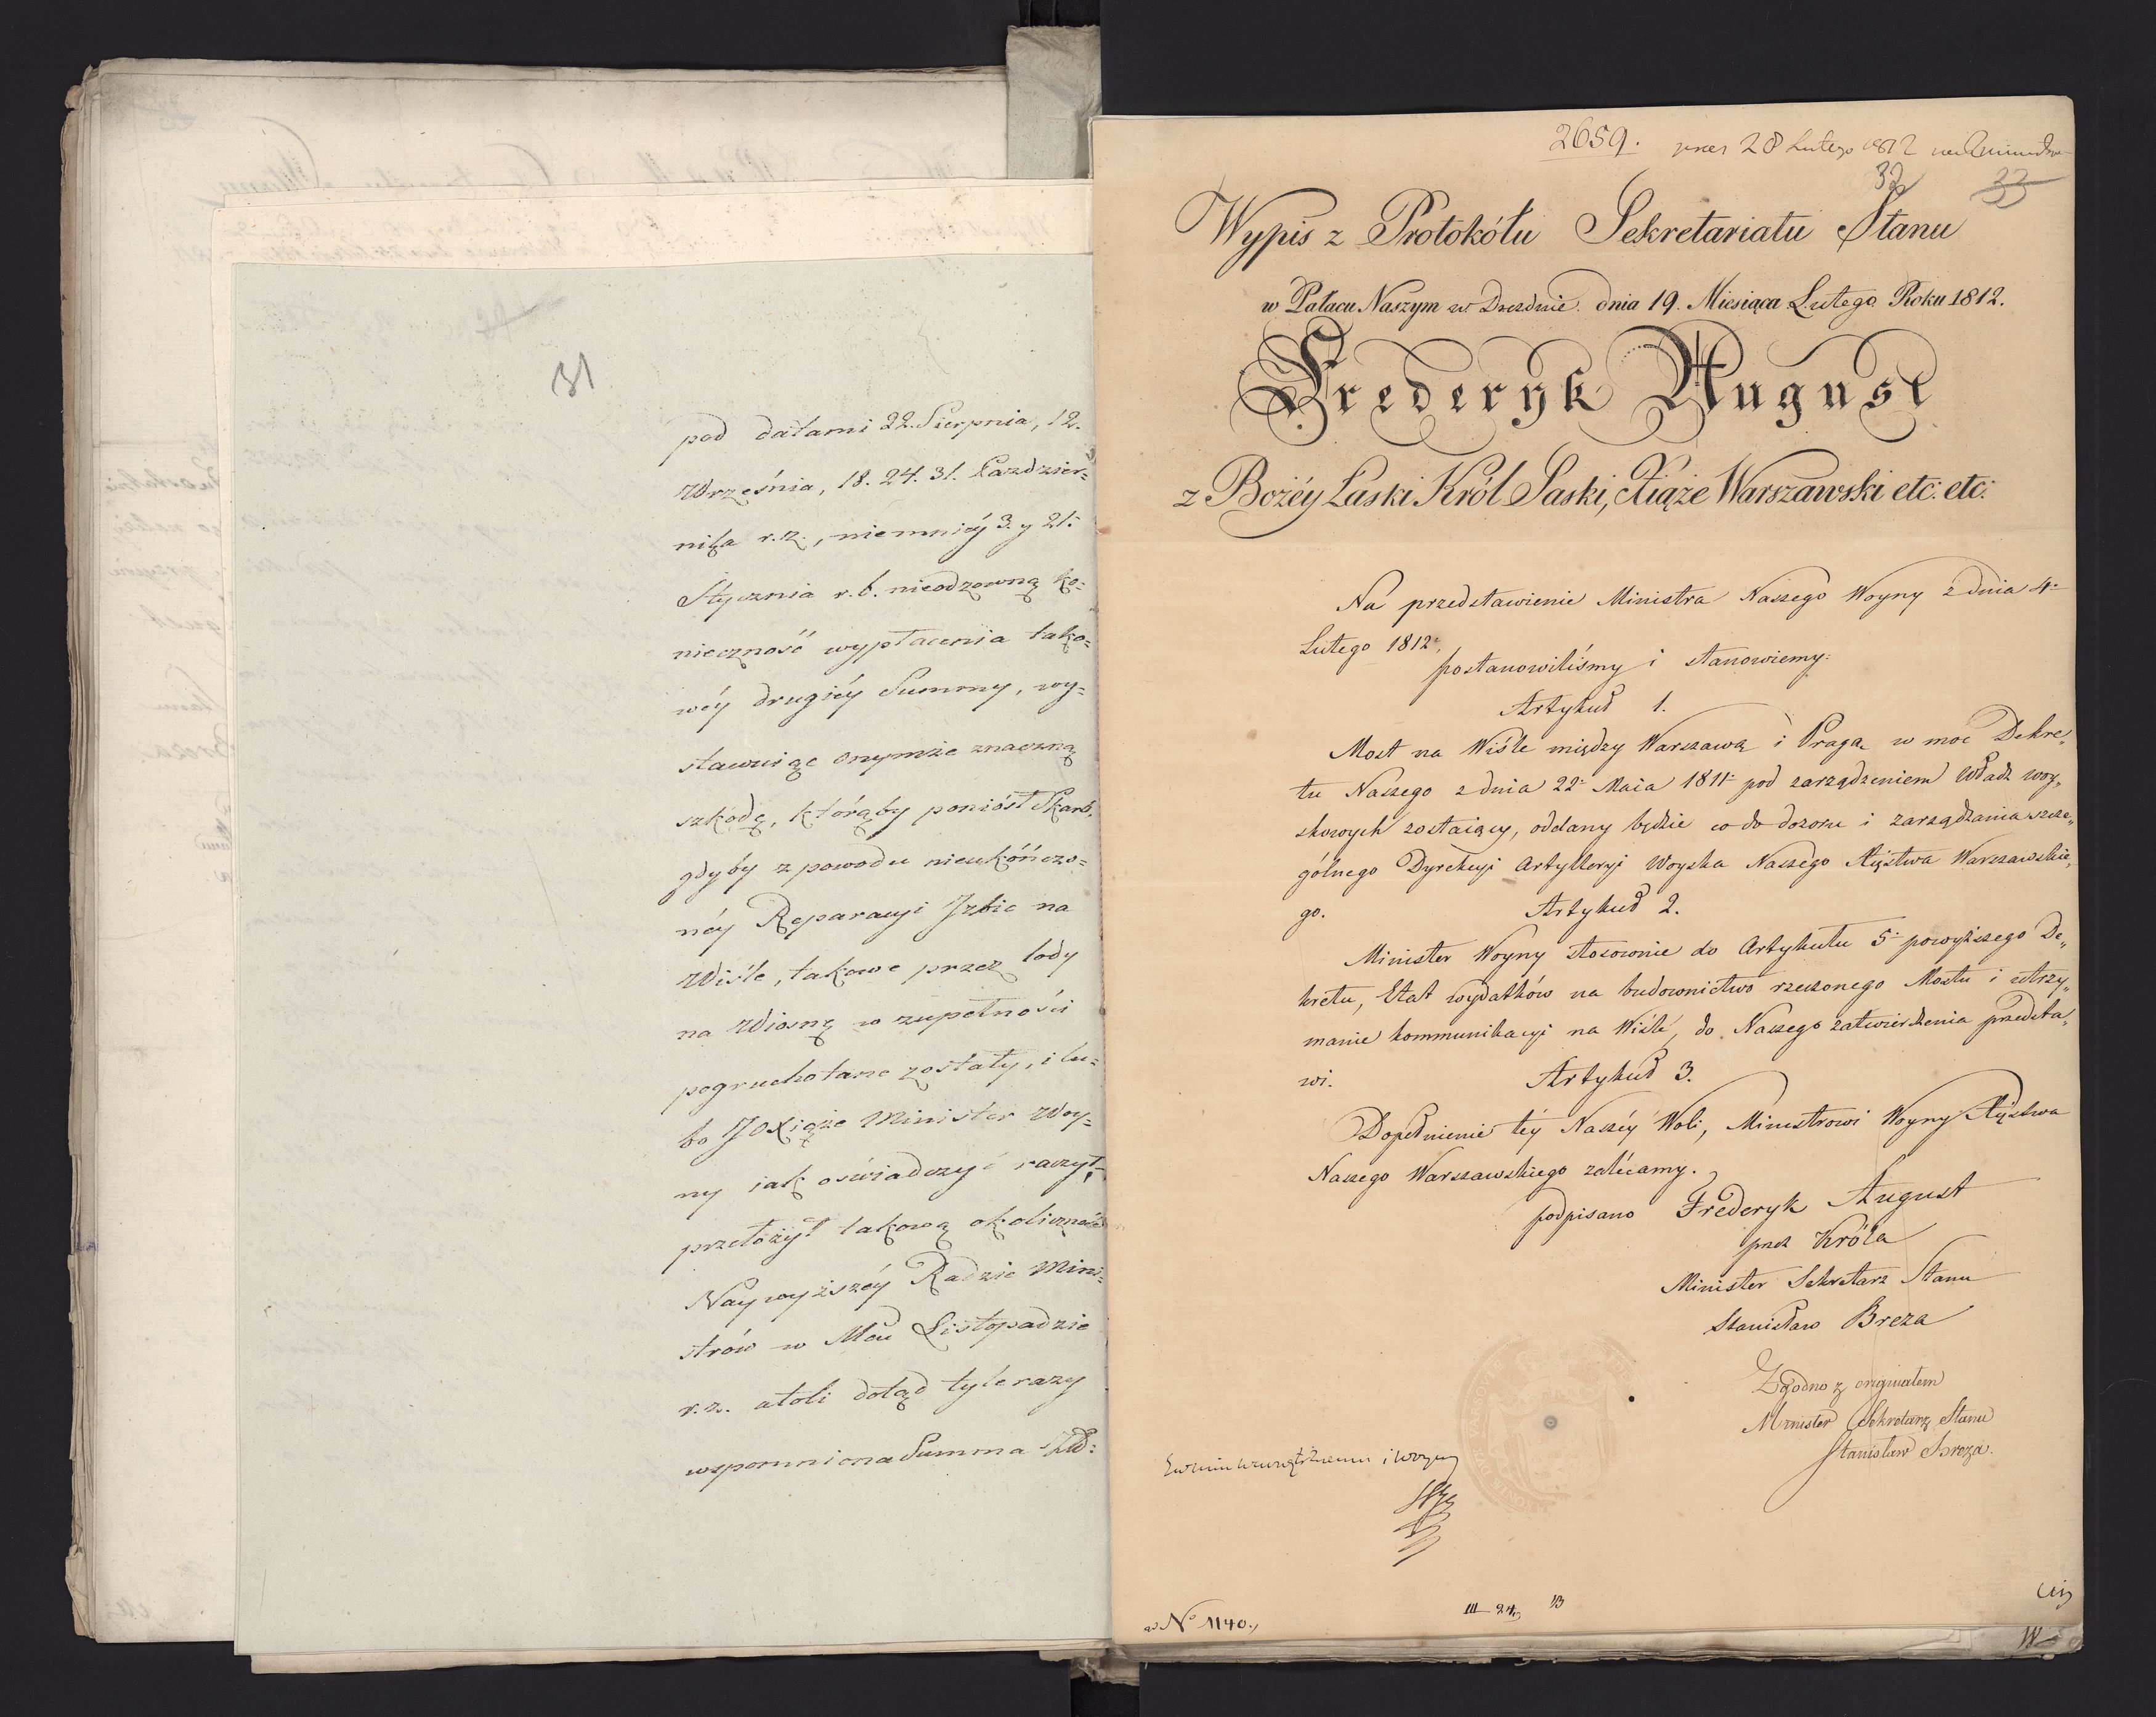 31
pod datami 22. Sierpnia, 12.
Września, 18. 24. 31. Paździer=
nika r. z., niemniéy 3. y 21.
Stycznia r. b. nieodzowną ko=
nieczność wypłacenia tako=
wéy drugiéy Summy, wy=
stawuiąc onymże znaczną
szkodę, którąby poniósł Skarb,
gdyby z powodu nieukończo=
néy Reparacyi Izbic na
Wiśle, takowe przez lody
na Wiosnę w zupełności
pogruchotane zostały, i lu=
bo JOXiąże Minister Woy=
ny iak oświadczyć raczył,
przełożył takową okoliczność
Naywyższéy Radzie Mini=
strów w Mcu Listopadzie
r. z. atoli dotąd tyle razy
wspomniona Summa Złł:
2659. prez 28 Lutego 1812
32 33
Wypis z Protokółu Sekretariatu Stanu
w Pałacu Naszym w Dreźnie. dnia 19. Miesiąca Lutego Roku 1812.
Frederyk August
z Bożéy Łaski Król Saski, Xiąże Warszawski etc: etc:
Na przedstawienie Ministra Naszego Woyny z dnia 4.
Lutego 1812.,
postanowiliśmy i stanowiemy:
Artykuł 1.
Most na Wiśle między Warszawą i Pragą, w moc Dekre„
tu Naszego z dnia 22. Maia 1811. pod zarządzeniem Władz woy„
skowych zostaiący, oddany będzie co do dozoru i zarządzania szcze„
gólnego Dyrekcyi Artylleryi Woyska Naszego Xięstwa Warszawskie„
go.
Artykuł 2.
Minister Woyny stosownie do Artykułu 5. powyższego De„
kretu, Etat wydatków na budownictwo rzeczonego Mostu i utrzy„
manie kommunikacyi na Wiśle, do Naszego zatwierdzenia przedsta„
wi.
Artykuł 3.
Dopełnienie téy Naszéy Woli, Ministrowi Woyny Xięstwa
Naszego Warszawskiego zalécamy.
podpisano Frederyk August
przez Króla
Minister Sekretarz Stanu
Stanisław Breza
Zgodno z originałem
Minister Sekretarz Stanu
Stanisław Breza.
i woyny
III 24 13
ad No 1140.,